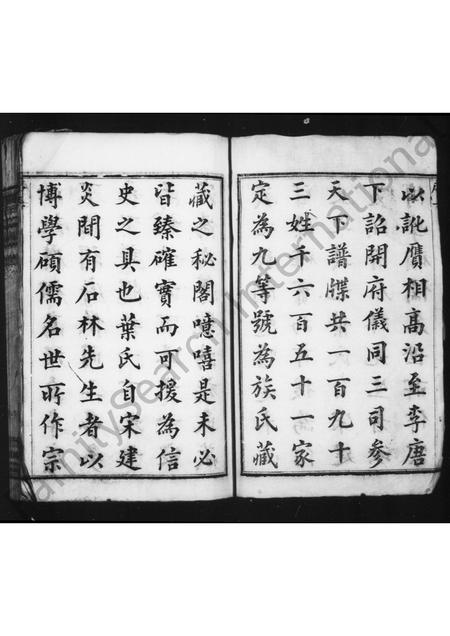 以訛贋相高沿至李唐
下詔開府儀同三司參
天下譜牒共一百九十
三姓千六百五十一家
定為九等號為族氏藏
藏之秘閣噫嘻是未必
皆臻確實而可援為信
史之具也葉氏自宋建
炎間有石林先生者以
博學碩儒名世所作宗
FamilySearch International